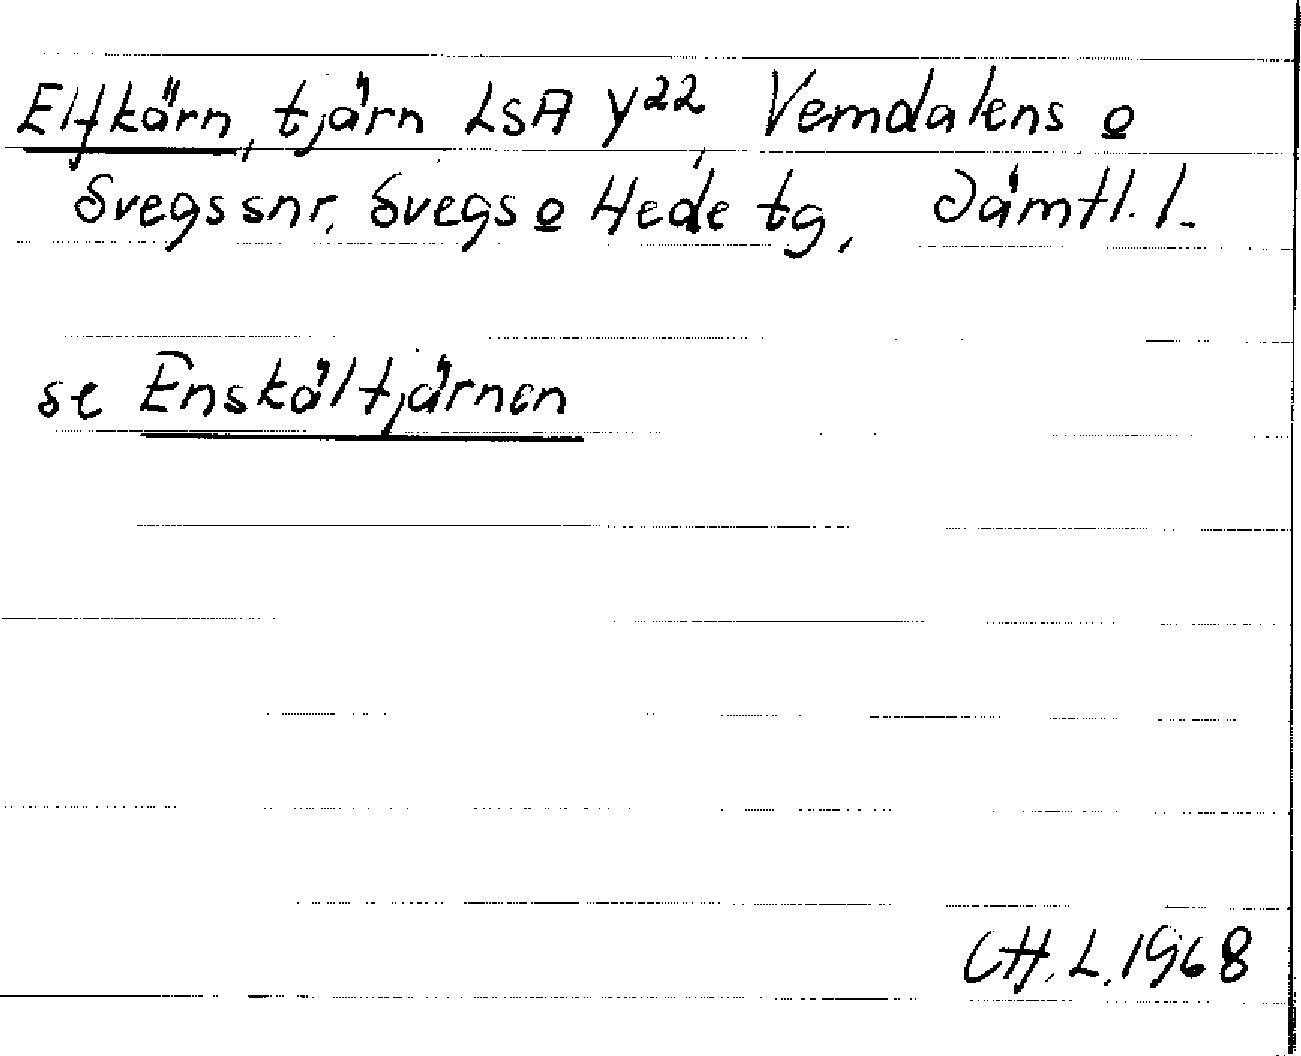 Elfkärn, tjärn LSA Y22, Vemdalens o
Svegs snr, Svegs o Hede tg, Jämtl. l.
se Enskältjärnen
CH. L. 1968